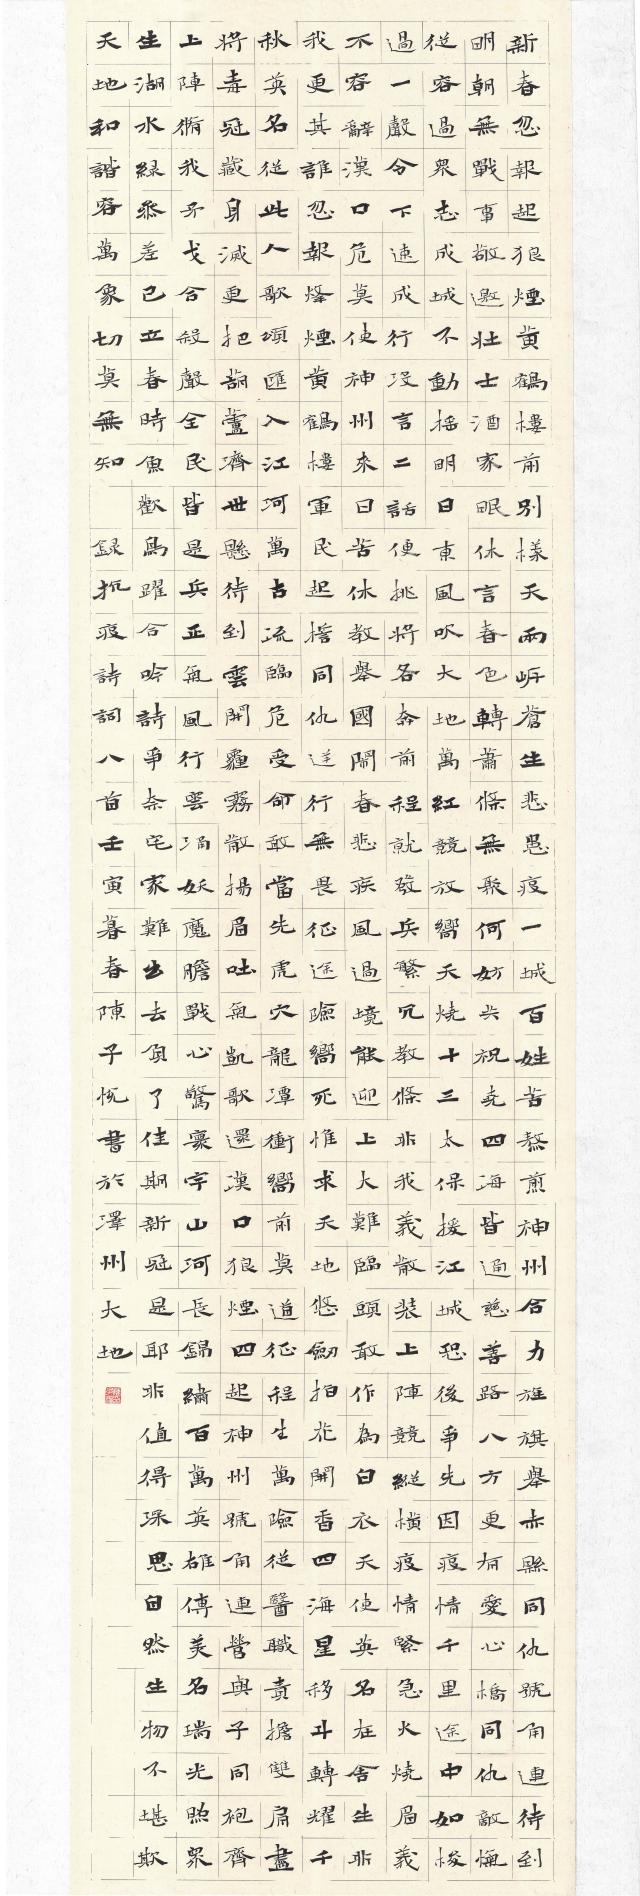 新春忽報起狼煙黃鶴樓前別樣天兩岍蒼生悲惡疫一城百姓苦熬煎神州合力旌旗舉赤縣同仇號角連待到
明朝無戰事敬邀壯士酒家眠休言春色轉蕭條無聚何妨共祝堯四海皆通慈善路八方更有愛心橋同仇敵愾
從容過眾志成城不動搖明日東風吹大地萬紅競放嚮天燒十三太保援江城恐後爭先因疫情千里途中如梭
過一聲令下速成行沒言二話便挑將各奔前程就發兵繁冗教條非我義散裝上陣競縱橫疫情緊急火燒眉義
不容辭漢口危莫使神州來日苦休教舉國鬧春悲疾風過境能迎上大難臨頭敢作為白衣天使英名在舍生非
我更其誰忽報烽煙黃鶴樓軍民起誓同仇送行無畏征途險嚮死惟求天地悠劍指花開香四海星移斗轉耀千
秋英名從此人歌頌匯入江河萬古流臨危受命敢當先虎穴龍潭衝嚮前莫道征程生萬險從醫職責擔雙肩盡
將毒冠藏身滅更把葫蘆濟世懸待到雲開霾霧散揚眉吐氣凱歌還漢口狼煙四起神州號角連營與子同袍齊
上陣脩我矛戈合殺聲全民皆是兵正氣風行雲涌妖魔膽戰心驚寰宇山河長錦繡百萬英雄傳美名瑞光照眾
生湖水綠參差已立春時魚歡鳥躍合吟詩爭奈宅家難出去負了佳期新冠是耶非值得深思自然生物不堪欺
天地和諧容萬象切莫無知 錄抗疫詩詞八首壬寅暮春陳子悅書於澤州大地